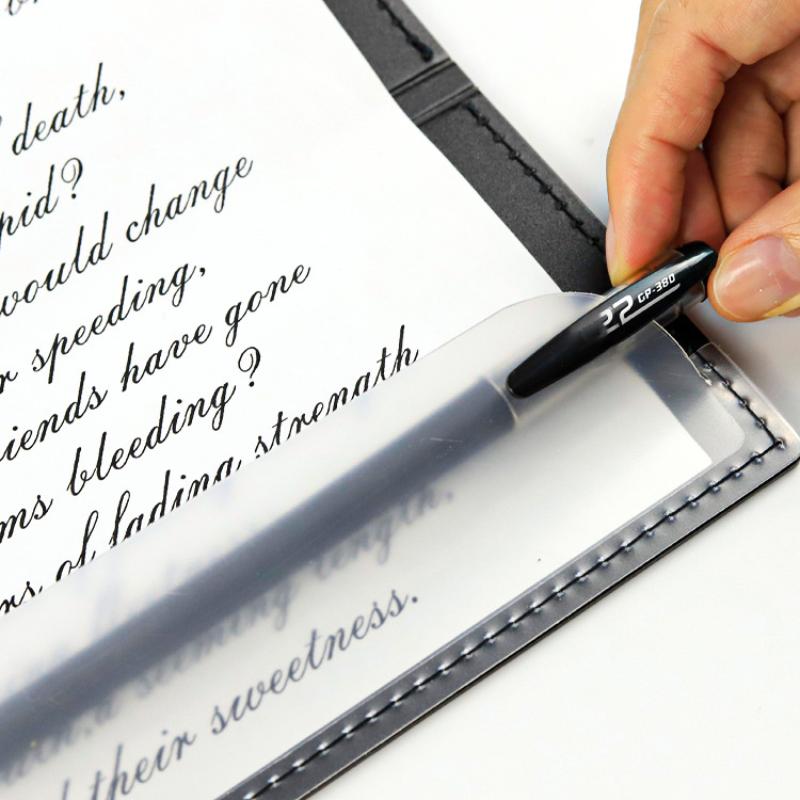 death,
pid?
would change
r speeding,
iends have gone
ms bleeding?
rs of fading strength
a seeming length,
d their sweetness.
GP-380